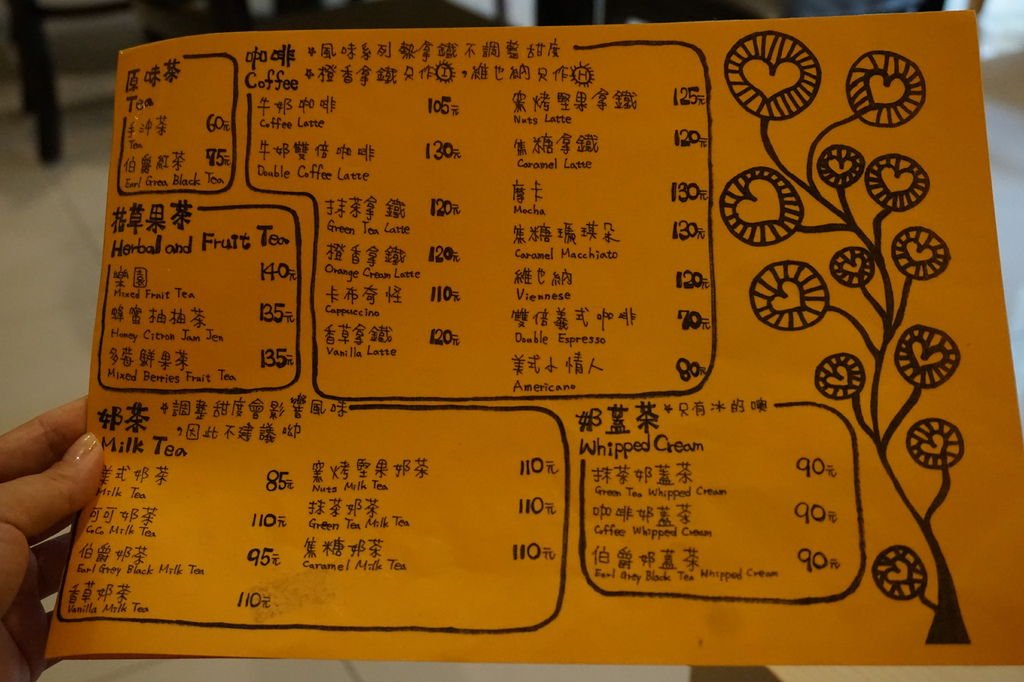 原味茶
Tea
手沖茶 60元
Tea
伯爵紅茶 75元
Earl Grea Black Tea
花草果茶
Herbal and Fruit Tea
樂園 140元
Mixed Fruit Tea
蜂蜜柚柚茶 135元
Honey Citron Jam Jen
多莓鮮果茶 135元
Mixed Berries Fruit Tea
咖啡 *風味系列熱拿鐵不調整甜度
Coffee *橙香拿鐵只作I,維也納只作H
牛奶咖啡 105元
Coffee Latte
牛奶雙倍咖啡 130元
Double Coffee Latte
抹茶拿鐵 120元
Green Tea Latte
橙香拿鐵 120元
Orange Cream Latte
卡布奇怪 110元
Cappuccino
香草拿鐵 120元
Vanilla Latte
窯烤堅果拿鐵 125元
Nuts Latte
焦糖拿鐵 120元
Caramel Latte
摩卡 130元
Mocha
焦糖瑪琪朵 130元
Caramel Macchiato
維也納 120元
Viennese
雙倍義式咖啡 70元
Double Espresso
美式小情人 80元
Americano
奶茶 *調整甜度會影響風味
,因此不建議呦
Milk Tea
美式奶茶 85元
Milk Tea
可可奶茶 110元
CoCo Milk Tea
伯爵奶茶 95元
Earl Grey Black Milk Tea
香草奶茶 110元
Vanilla Milk Tea
窯烤堅果奶茶 110元
Nuts Milk Tea
抹茶奶茶 110元
Green Tea Milk Tea
焦糖奶茶 110元
Caramel Milk Tea
奶蓋茶 *只有冰的噢
Whipped Cream
抹茶奶蓋茶 90元
Green Tea Whipped Cream
咖啡奶蓋茶 90元
Coffee Whipped Cream
伯爵奶蓋茶 90元
Earl Grey Black Tea Whipped Cream